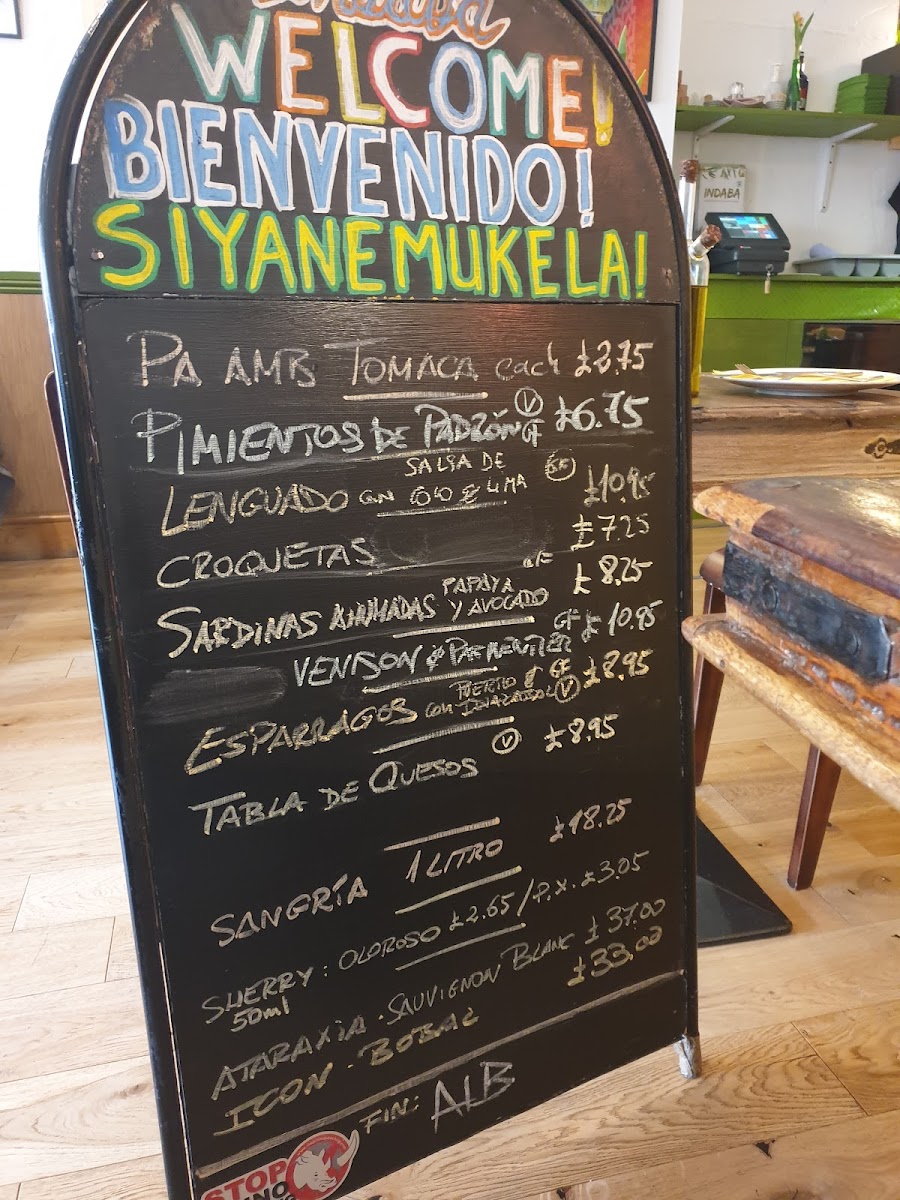 WELCOME!
BIENVENIDO!
SIYANEMUKELA!
INDABA
PA AMB TOMACA each £2.75
PIMIENTOS DE PADRÓN V GF £6.75
LENGUADO CON SALSA DE COCO & LIMA GF £10.95
CROQUETAS £7.25
SARDINAS AHUMADAS PAPAYA Y AVOCADO GF £8.25
VENISON & PARMENTIER GF £10.95
ESPARRAGOS CON GF V £8.95
TABLA DE QUESOS V £8.95
SANGRÍA 1 LITRO £18.25
SHERRY: OLOROSO £2.65 / P.X. £3.05
50ml
ATARAXIA - SAUVIGNON BLANC £37.00
ICON - BOBAL £33.00
FIN: ALB
STOP